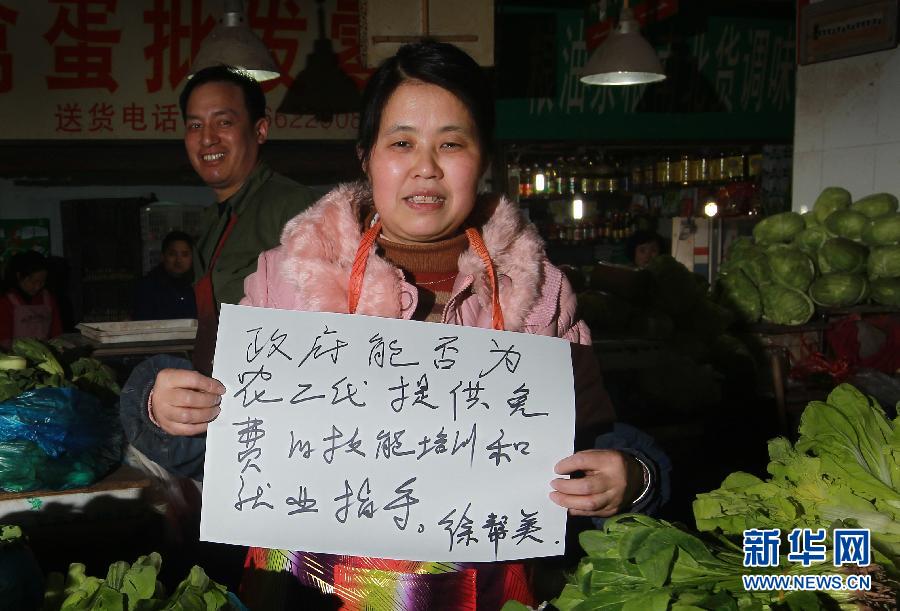 禽蛋批发零
送货电话
6622908
粮油东
北货调味
政府能否为
农二代提供免
费的技能培训和
就业指导。徐帮美.
新华网
WWW.NEWS.CN